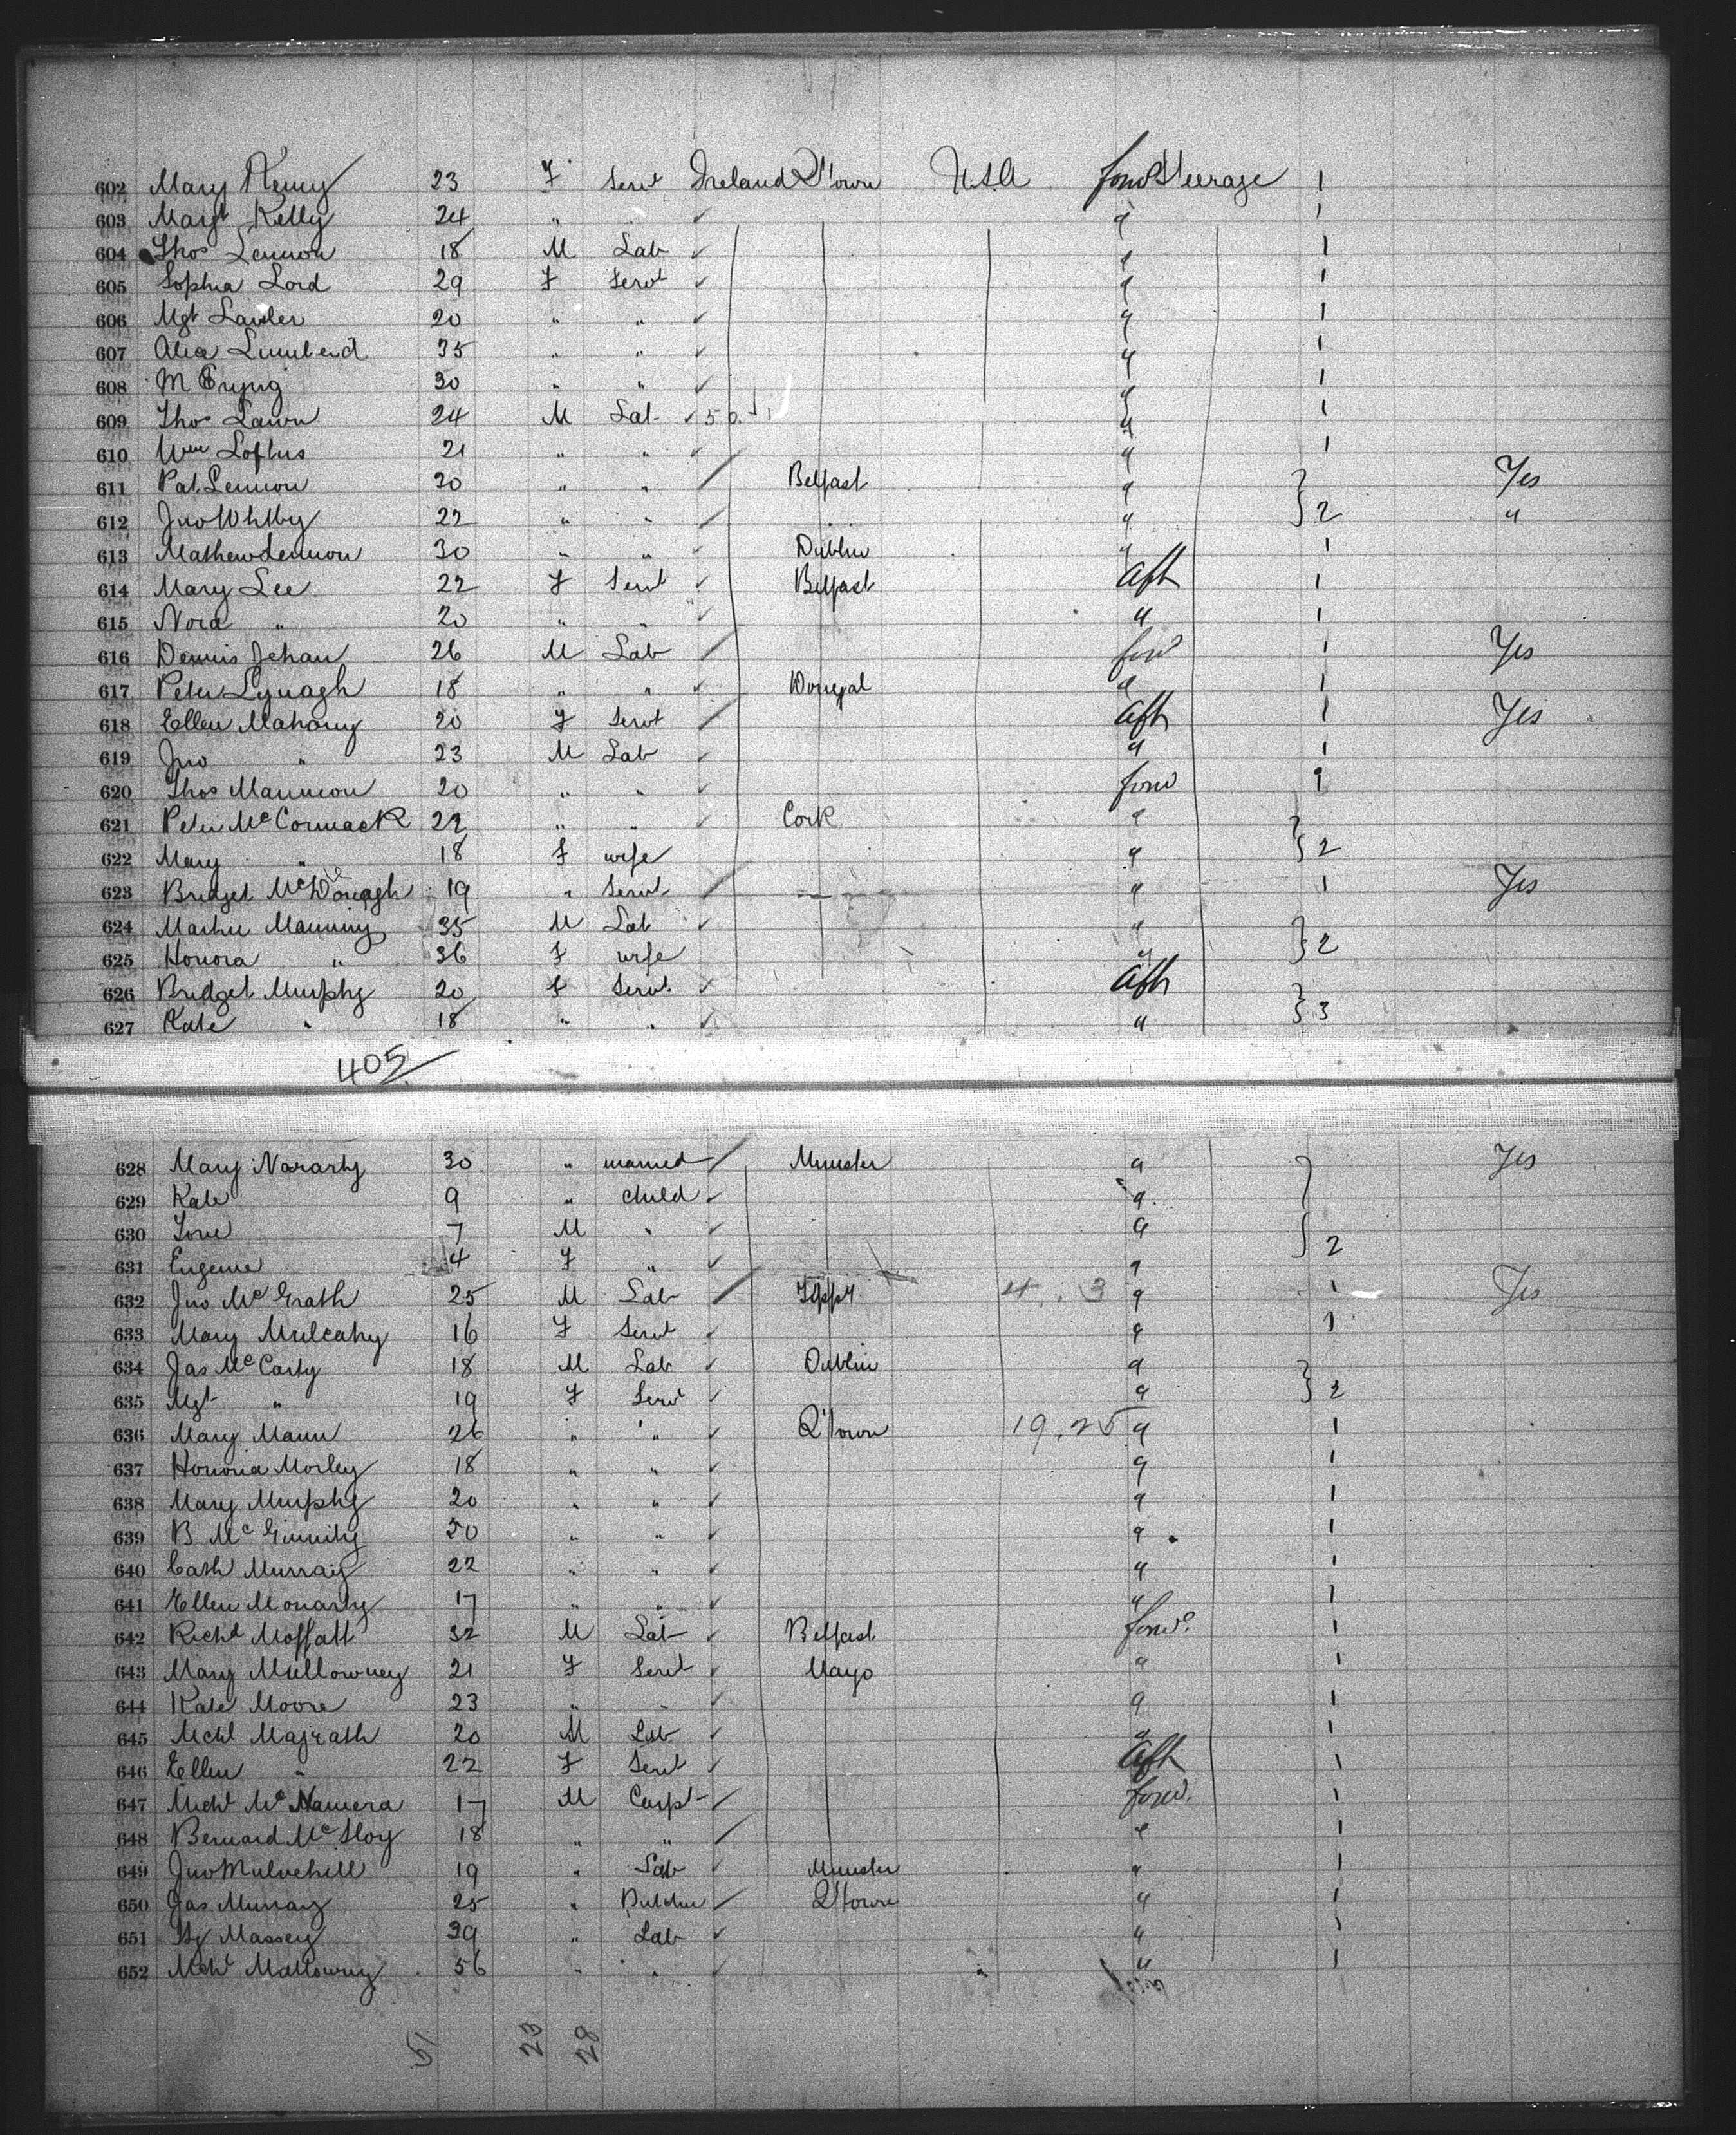 602 Mary Henry 23 F Servt Ireland Q'town U.S.A forwd Steerage 1
603 Margt Kelly 24 " " " 1
604 Thos Lennon 18 M Lab " 1
605 Sophia Lord 29 F Servt " 1
606 Mgt Lawler 20 " " " 1
607 Alice 35 " " " 1
608 M 30 " " " 1
609 Thos Lawn 24 M Lab " 1
610 Wm Loftus 21 " " " 1
611 Pat Lennon 20 " " Belfast " Yes
612 Jno 22 " " " " } 2 "
613 Mathew Lennon 30 " " Dublin " 1
614 Mary Lee 22 F Servt Belfast Aft 1
615 Nora " 20 " " " 1
616 Dennis 26 M Lab forwd 1 Yes
617 Peter Lynagh 18 " " Donegal " 1
618 Ellen Mahony 20 F Servt Aft 1 Yes
619 Jno " 23 M Lab " 1
620 Thos Mannion 20 " " forw 1
621 Peter McCormack 22 " " Cork "
622 Mary " 18 F wife " } 2
623 Bridget McDonagh 19 " Servt " 1 Yes
624 Martin Manning 35 M Lab "
625 Honora " 36 F wife " } 2
626 Bridget Murphy 20 F Servt Aft
627 Kate " 18 " " " } 3
405
628 Mary 30 " married Munster " Yes
629 Kate 9 " child "
630 7 M " "
631 Eugene 4 F " " } 2
632 Jno McGrath 25 M Lab Tippy 4 . . 3 " 1 Yes
633 Mary Mulcahy 16 F Servt " 1
634 Jas McCarty 18 M Lab Dublin "
635 Mgt " 19 F Servt " } 2
636 Mary Mann 26 " " Q'town 19.25 " 1
637 Honoria Morley 18 " " " 1
638 Mary Murphy 20 " " " 1
639 B McGinnity 20 " " " 1
640 Cath Murray 22 " " " 1
641 Ellen Moriarty 17 " " " 1
642 Richd Moffatt 32 M Lab Belfast forwd 1
643 Mary Mullowney 21 F Servt Mayo " 1
644 Kate Moore 23 " " " 1
645 Michl Magrath 20 M Lab " 1
646 Ellen " 22 F Servt Aft 1
647 Michl McNamera 17 M Carpt forwd. 1
648 Bernard McIloy 18 " " " 1
649 Jno Mulvehill 19 " Lab Munster " 1
650 Jas Murray 25 " Butcher Q'town " 1
651 Hy Massey 29 " Lab " 1
652 Michl Mallowny 56 " " " 1
51 23 28